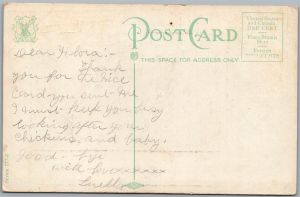 POST CARD
THIS SPACE FOR ADDRESS ONLY
United States
and Canada
ONE CENT
Place Stamp
Here
Foreign
CENTS
Dear :-
Thank
you for the nice
Card you sent me
I must keep you busy
looking after your
chickens and baby.
good-bye
with love xxxxxx